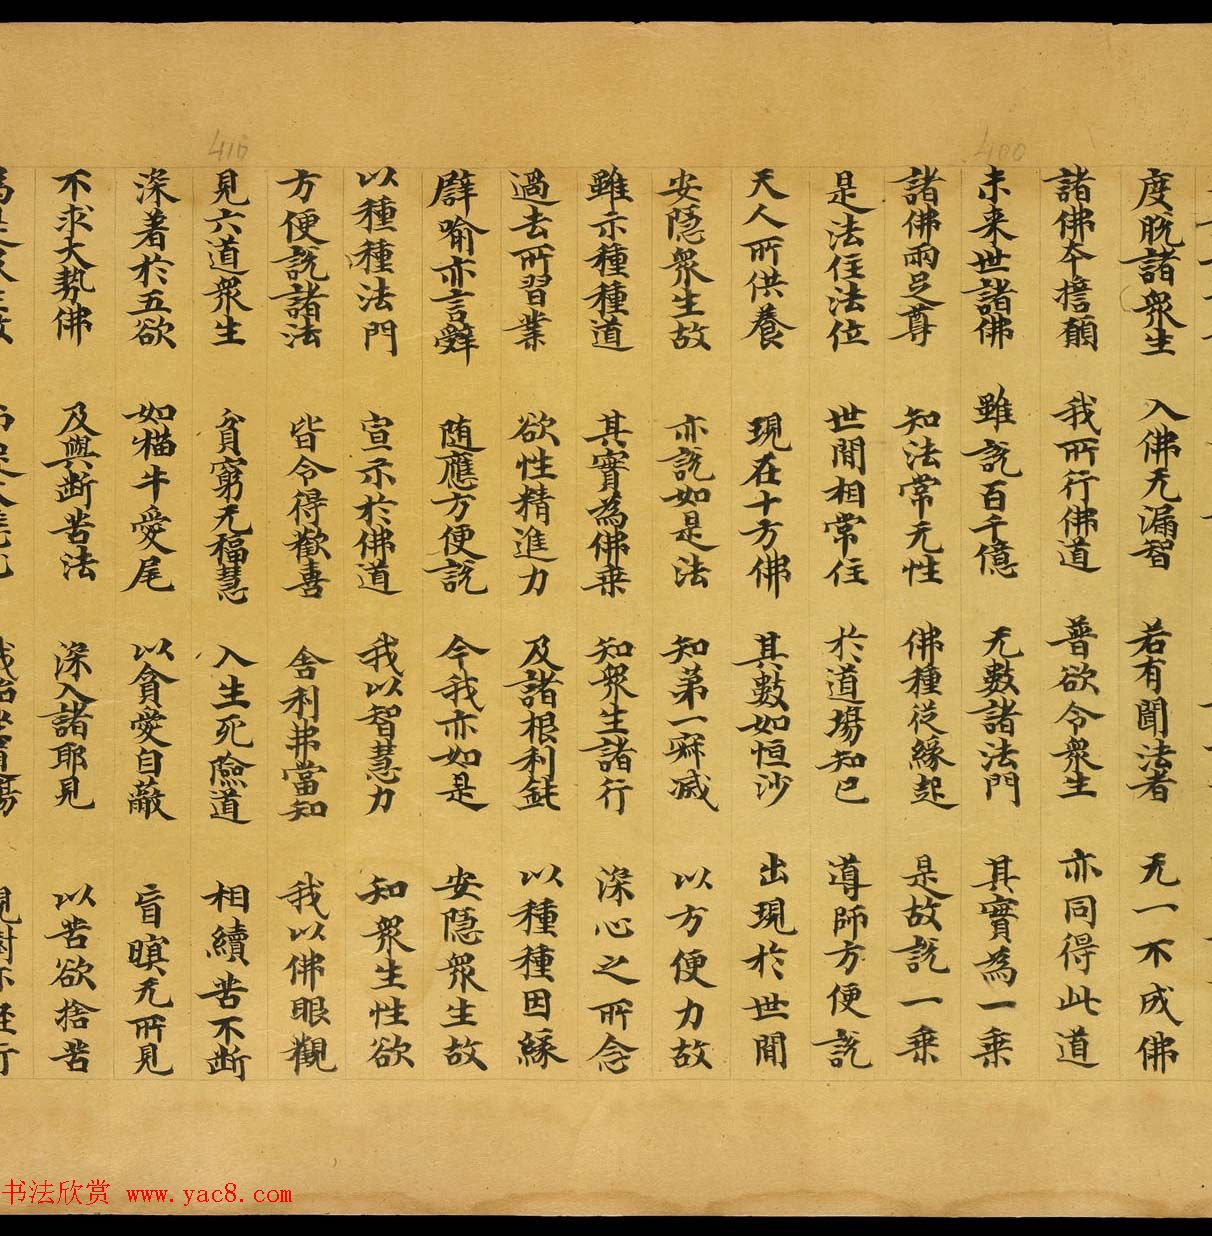 度脫諸衆生 入佛无漏智 若有聞法者 无一不成佛
諸佛本擔願 我所行佛道 普欲令衆生 亦同得此道
未来世諸佛 雖說百千億 无數諸法門 其實為一乗
諸佛兩足尊 知法常无性 佛種從緣起 是故說一乗
是法住法位 世間相常住 於道場知已 導師方便說
天人所供養 現在十方佛 其數如恒沙 出現於世間
安隱衆生故 亦說如是法 知第一寂滅 以方便力故
雖示種種道 其實為佛乗 知衆生諸行 深心之所念
過去所習業 欲性精進力 及諸根利鈍 以種種因緣
譬喻亦言辭 随應方便說 今我亦如是 安隱衆生故
以種種法門 宣示於佛道 我以智慧力 知衆生性欲
方便說諸法 皆令得歡喜 舍利弗當知 我以佛眼觀
見六道衆生 貧窮无福慧 入生死險道 相續苦不断
深著於五欲 如猫牛愛尾 以貪愛自蔽 盲瞑无所見
不求大勢佛 及與断苦法 深入諸耶見 以苦欲捨苦
410
400
书法欣赏 www.yac8.com